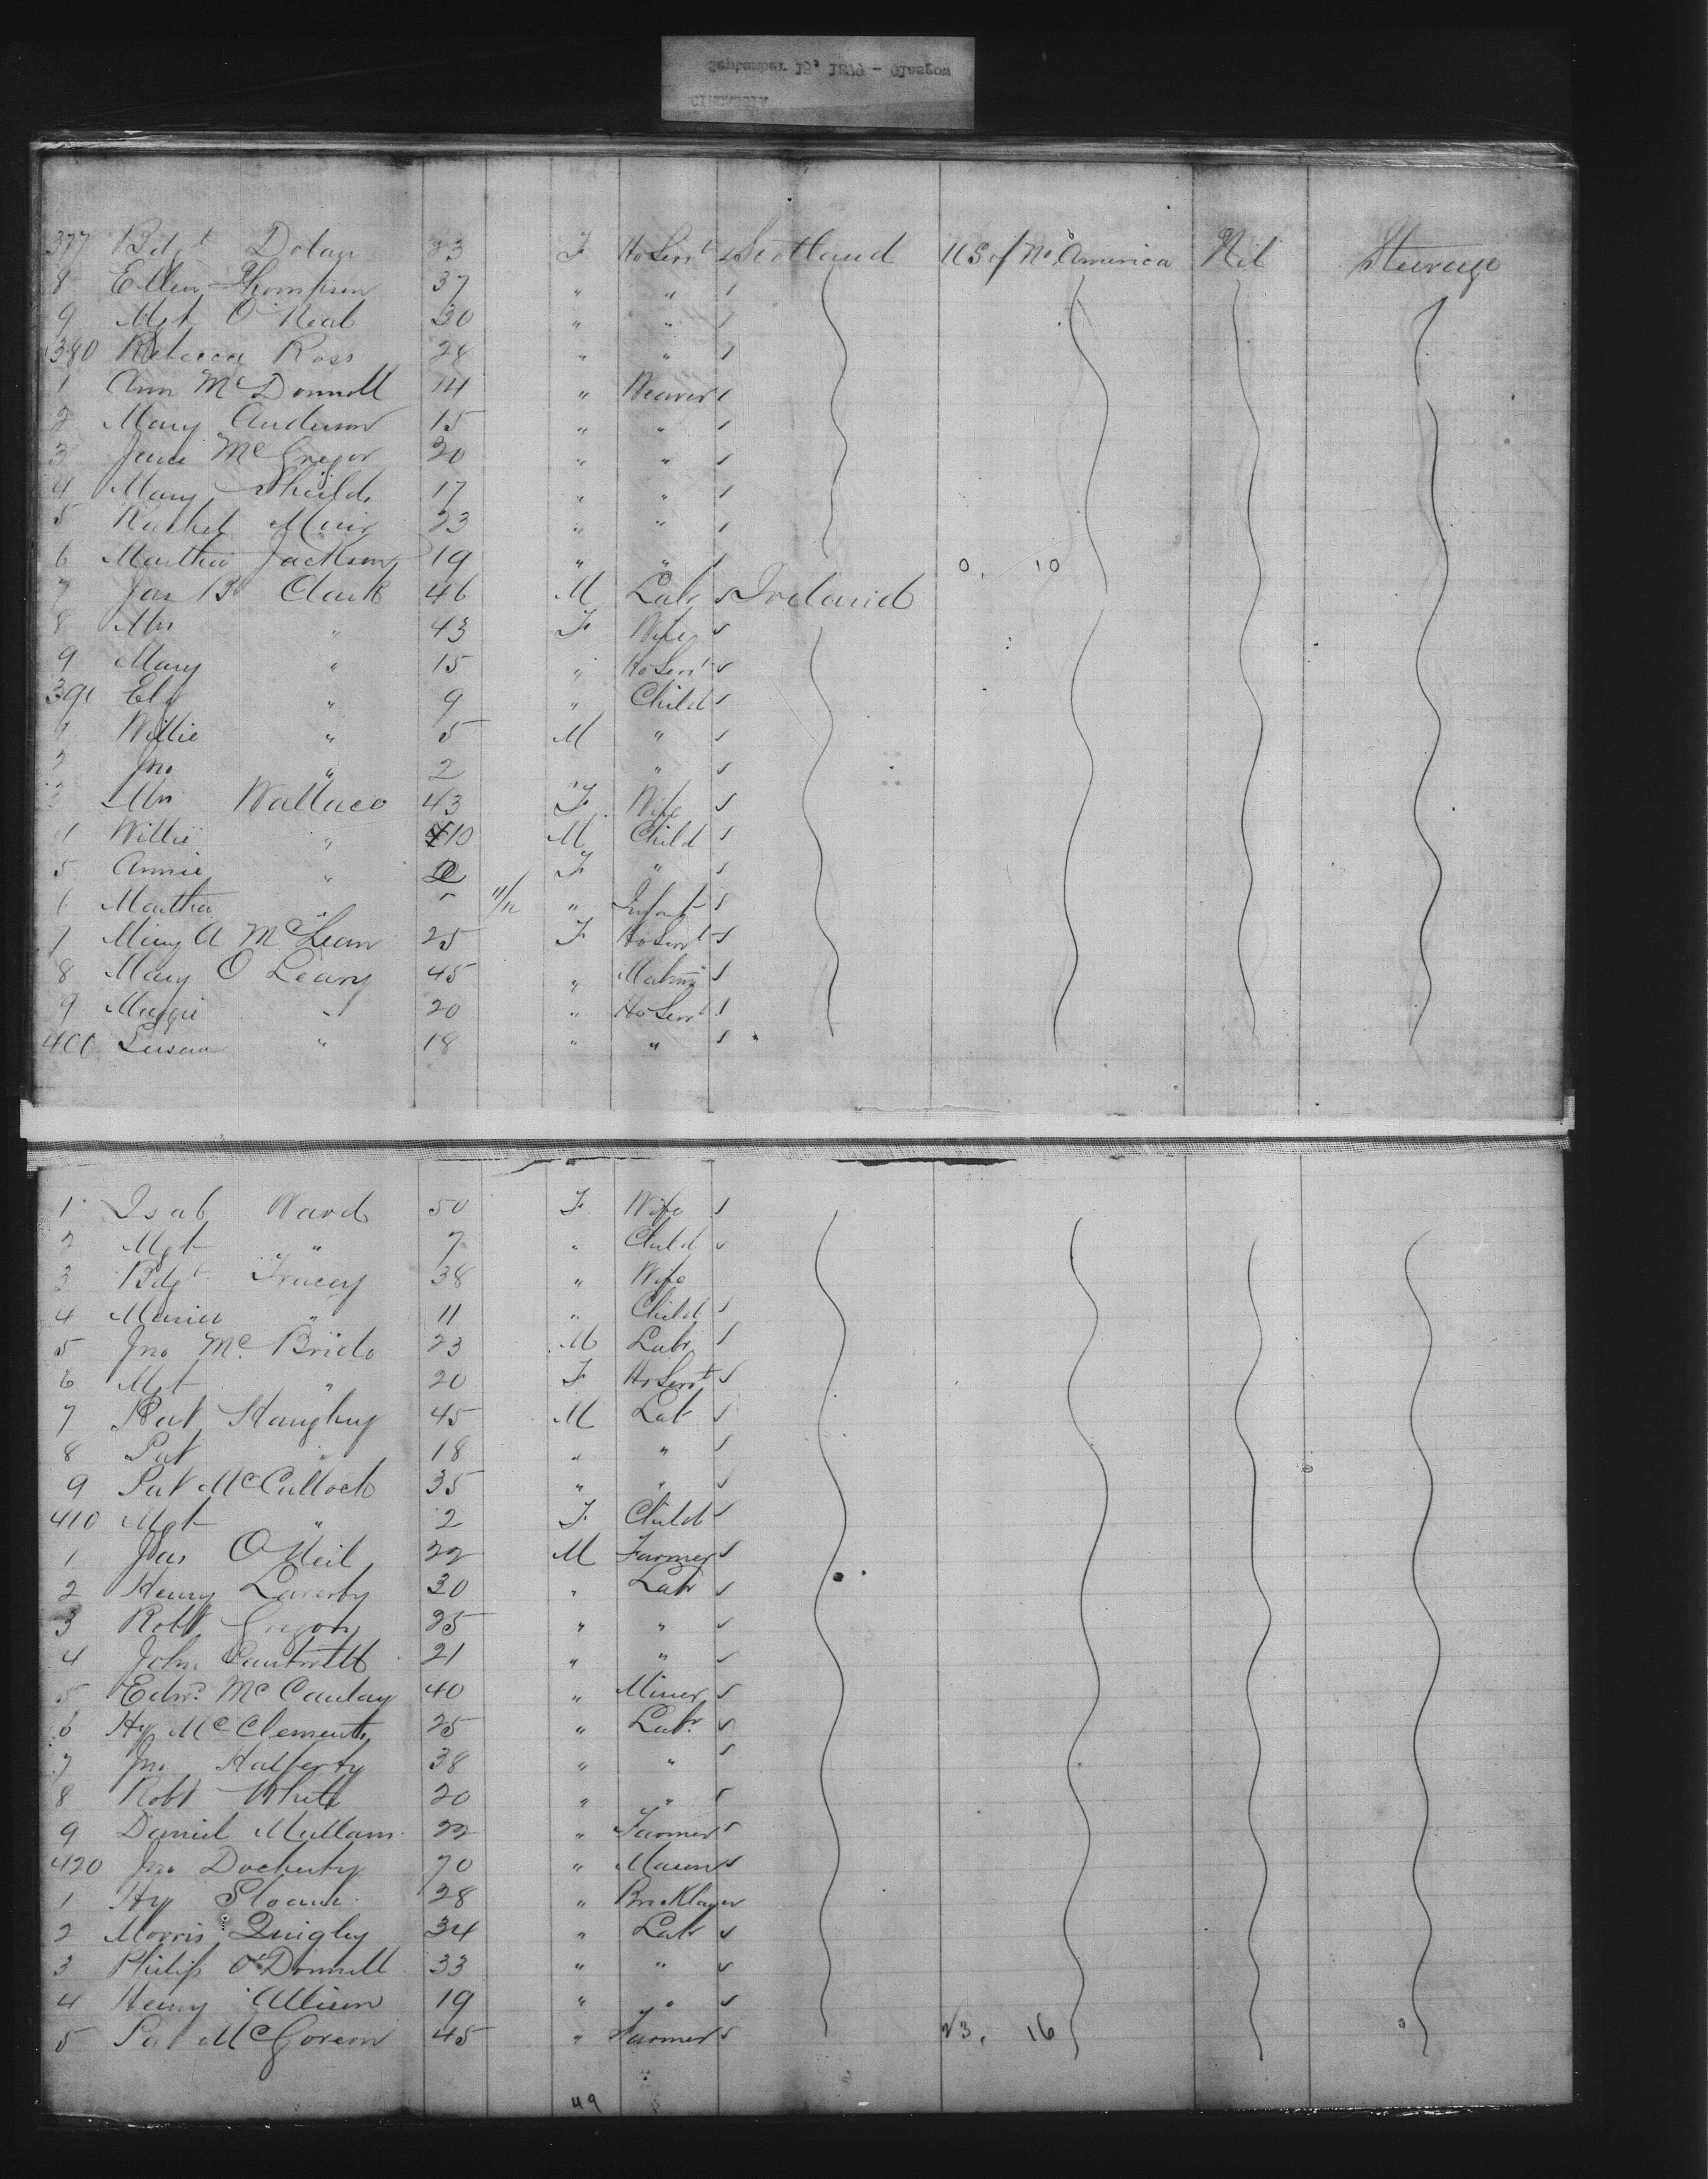 September 15, 1879 - Glasgow
CIRCASSIA
377 Bdgt Dolan 23 F HoServt Scotland US of No America Nil Steerage
8 Ellen Thompson 37 " "
9 Mgt O'Neal 30 " "
380 Rebecca Ross 28 " "
1 Ann McDonnell 14 " Weaver
2 Mary Anderson 15 " "
3 Jane McGregor 20 " "
4 Mary Shields 17 " "
5 Rachel Muir 23 " "
6 Martha Jackson 19 " " 0. 10
7 Jas B Clark 46 M Labr Ireland
8 Mrs " 43 F Wife
9 Mary " 15 " HoServt
390 " 9 " Child
1 Willie " 5 M "
2 Jno " 2 "
3 Mrs Wallace 43 F Wife
4 Willie " 10 M Child
5 Annie " F "
6 Martha " 11/12 " Infant
7 Mary A McLean 25 F HoServt
8 Mary O Leary 45 " Matron
9 Maggie " 20 " HoServt
400 Susan " 18 " "
1 Isab Ward 50 F Wife
2 Mgt " 7 " Child
3 Bdgt Tracey 38 " Wife
4 Maria " 11 " Child
5 Jno McBride 23 M Labr
6 Mgt " 20 F HoServt
7 Pat Haughey 45 M Labr
8 Pat " 18 " "
9 Pat McCulloch 35 " "
410 Mgt " 2 F Child
1 Jas O'Neil 22 M Farmer
2 Henry Laverty 30 " Labr
3 Robt Gregory 25 " "
4 John Cantwell 21 " "
5 Edwd McCaulay 40 " Miner
6 Hy McClements 25 " Labr
7 Jno Hafferty 38 " "
8 Robt White 20 " "
9 Daniel Mullam 22 " Farmer
420 Jno Docherty 70 " Mason
1 Hy Sloane 28 " Bricklayer
2 Morris Quigley 34 " Labr
3 Philip O'Donnell 33 " "
4 Henry Allison 19 " "
5 Pat McGovern 45 " Farmer 23. 16
49